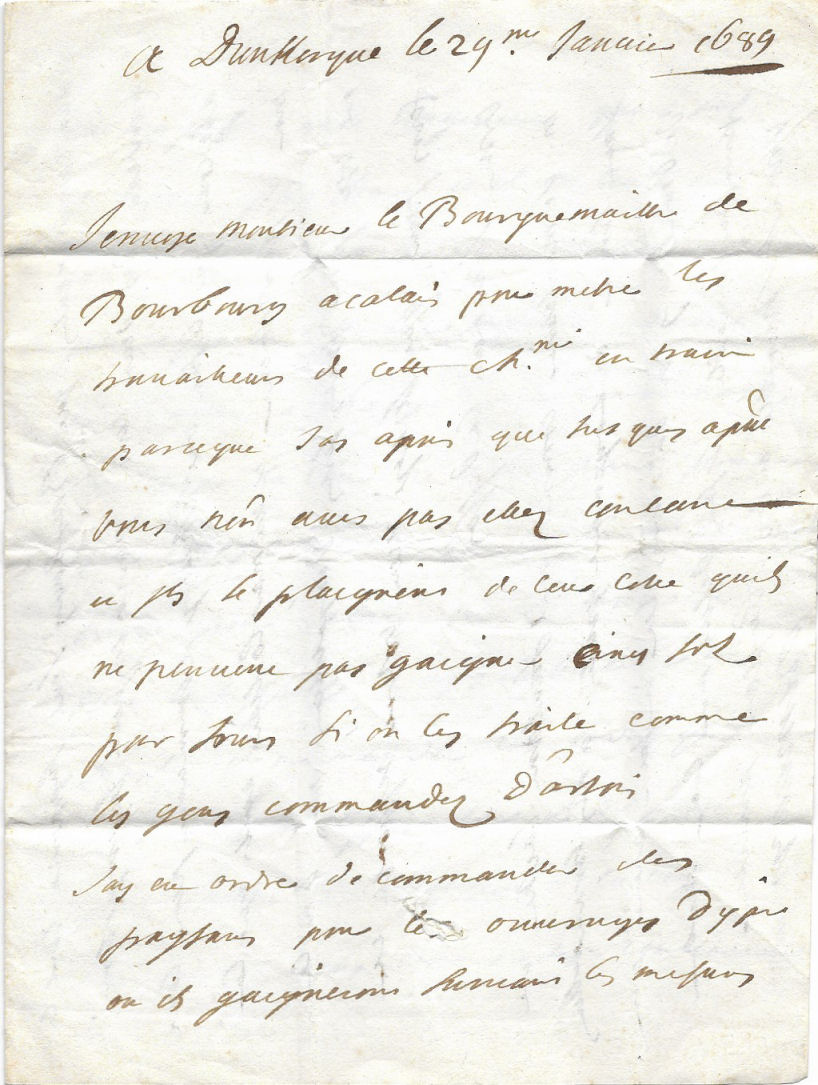 A Dunkerque le 29me Janvier 1689
Jenuoye monsieur le Bourguemaistre de
Bourbourg a calais pour metre les
trauailleurs de cette ch.nie en train
parceque Jay apris que Jusques apñt
vous nen aues pas estez content
et ils se plaignent de leur coste quils
ne peuuent pas gaigner cinq sol
par Jour si on les traite comme
les gens commandez D'artois
Jay eu ordre de commander des
paysans pour les ouurages Dypre
ou ils gaigneront suiuant les mesures